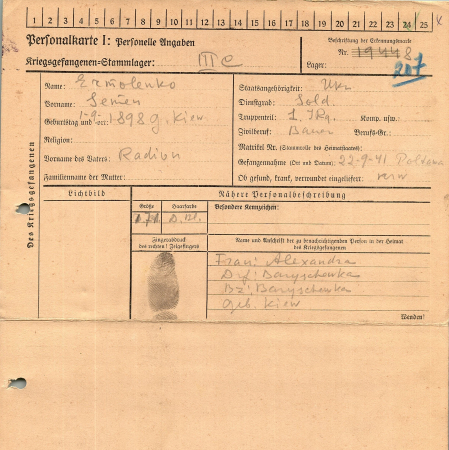 1 2 3 4 5 6 7 8 9 10 11 12 13 14 15 16 17 18 19 20 21 22 23 24 25
Personalkarte I: Personelle Angaben
Kriegsgefangenen-Stammlager: III C
Beschriftung der Erkennungsmarke
Nr. 19448
Lager:
Des Kriegsgefangenen
Name: Ermolenko
Vorname: Semen
Geburtstag und -ort: 1-9-1898 g. Kiew
Religion:
Vorname des Vaters: Radion
Familienname der Mutter:
Staatsangehörigkeit: Ukr.
Dienstgrad: Sold.
Truppenteil: 1. I Rg. Komp. usw.:
Zivilberuf: Bauer Berufs-Gr.:
Matrikel Nr. (Stammrolle des Heimatstaates):
Gefangennahme (Ort und Datum): 22-9-41 Poltawa
Ob gesund, krank, verwundet eingeliefert:
Lichtbild
Nähere Personalbeschreibung
Größe
Haarfarbe
Besondere Kennzeichen:
Fingerabdruck
des rechten! Zeigefingers
Name und Anschrift der zu benachrichtigenden Person in der Heimat
des Kriegsgefangenen
Frau: Alexandra
Drf: Baryschewka
Bz: Baryschewka
Geb. Kiew
Wenden!